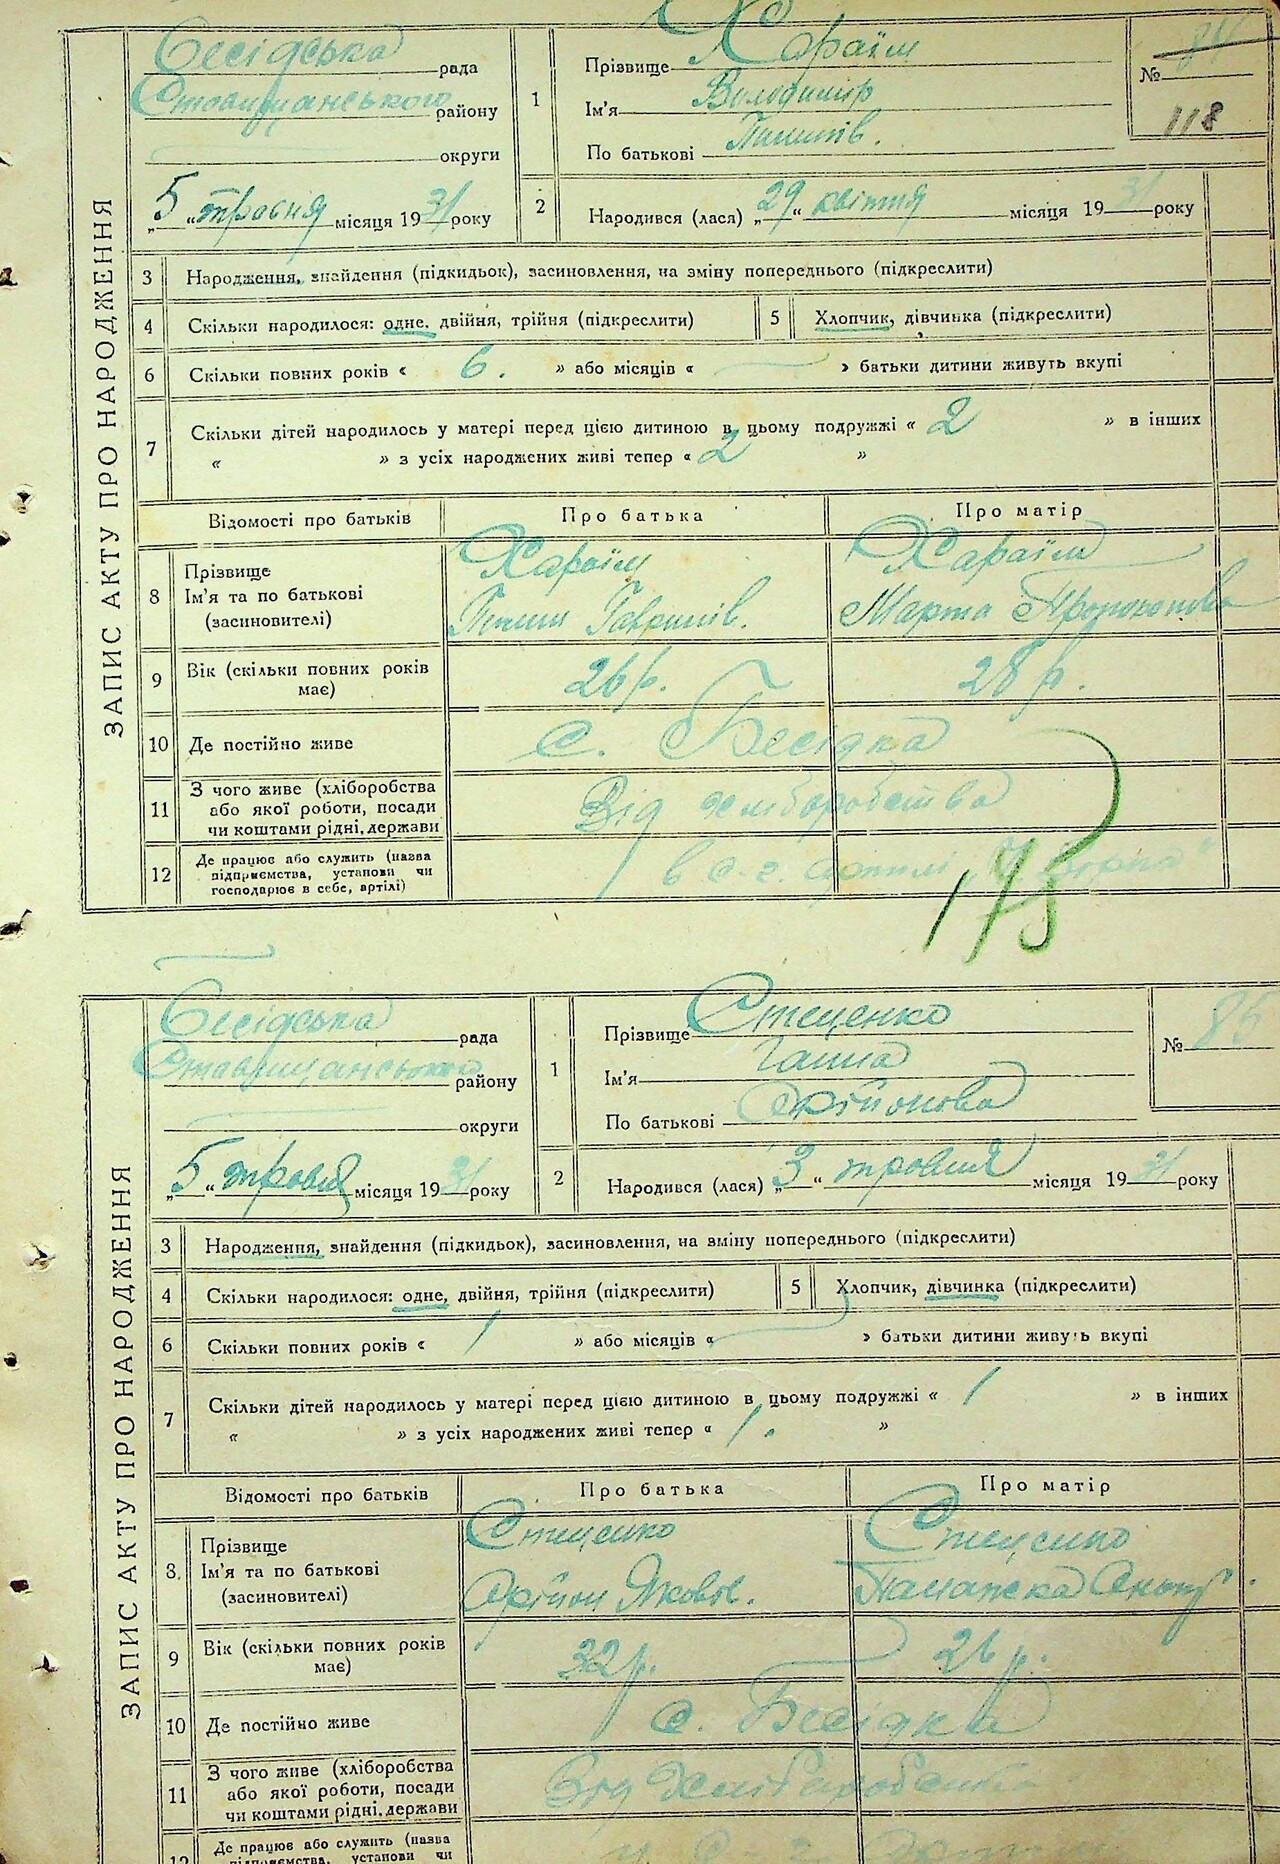 ЗАПИС АКТУ ПРО НАРОДЖЕННЯ
Бесідська рада
Ставищанського району
округи
„5“ травня місяця 1931 року
1
Прізвище Хараїм
Ім'я Володимир
По батькові
№ 84
118
2
Народився (лася) „29“ квітня місяця 1931 року
3 Народження, знайдення (підкидьок), засиновлення, на зміну попереднього (підкреслити)
4 Скільки народилося: одне, двійня, трійня (підкреслити)
5 Хлопчик, дівчинка (підкреслити)
6 Скільки повних років « 6. » або місяців « — » батьки дитини живуть вкупі
7 Скільки дітей народилось у матері перед цією дитиною в цьому подружжі « 2 » в інших
« » з усіх народжених живі тепер « 2 »
Відомості про батьків Про батька Про матір
8 Прізвище
Ім'я та по батькові
(засиновителі)
Хараїм
Гаврилів.
Хараїм
Марта Прокопова
9 Вік (скільки повних років має) 26 р. 28 р.
10 Де постійно живе с. Бесідка
11 З чого живе (хліборобства
або якої роботи, посади
чи коштами рідні, держави
Від хліборобства
12 Де працює або служить (назва
підприємства, установи чи
господарює в себе, артілі)
в с.-г. артілі
175
ЗАПИС АКТУ ПРО НАРОДЖЕННЯ
Бесідська рада
Ставищанського району
округи
„5“ травня місяця 1931 року
1
Прізвище Стеценко
Ім'я Ганна
По батькові
№ 85
2
Народився (лася) „3“ травня місяця 1931 року
3 Народження, знайдення (підкидьок), засиновлення, на зміну попереднього (підкреслити)
4 Скільки народилося: одне, двійня, трійня (підкреслити)
5 Хлопчик, дівчинка (підкреслити)
6 Скільки повних років « 1 » або місяців « — » батьки дитини живуть вкупі
7 Скільки дітей народилось у матері перед цією дитиною в цьому подружжі « 1 » в інших
« » з усіх народжених живі тепер « 1. »
Відомості про батьків Про батька Про матір
8. Прізвище
Ім'я та по батькові
(засиновителі)
Стеценко
Яковів.
Стеценко
Палажка
9 Вік (скільки повних років має) 32 р. 26 р.
10 Де постійно живе с. Бесідка
11 З чого живе (хліборобства
або якої роботи, посади
чи коштами рідні, держави
Від хліборобства
12 Де працює або служить (назва
підприємства, установи чи